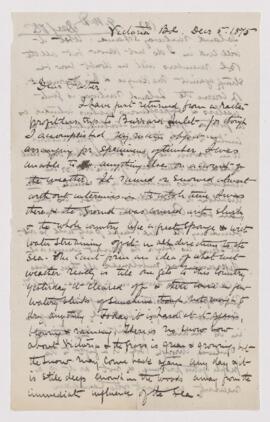 Victoria B.C. Dec 5th 1875
Dear Father
I have just returned from a rather
profitless trip to Burrard Inlet – for though
I accomplished my main object in
arranging for specimens of timber I was
unable to do anything else on account of
the weather. It rained or snowed almost
without intermission the whole time I was
there & the ground was covered with slush
& the whole country like a great sponge with
water streaming off it in all directions to the
sea. You can't form an idea of what wet
weather really is till you get to this country
yesterday it cleared off & there were a few
watery blinks of sunshine though not enough to
dry anything. Today it is hard at it again
blowing & raining. There is no snow now
about Victoria & the grass is green & growing but
the snow may come back again any day & it
is still deep enough in the woods away from the
immediate influence of the Sea.